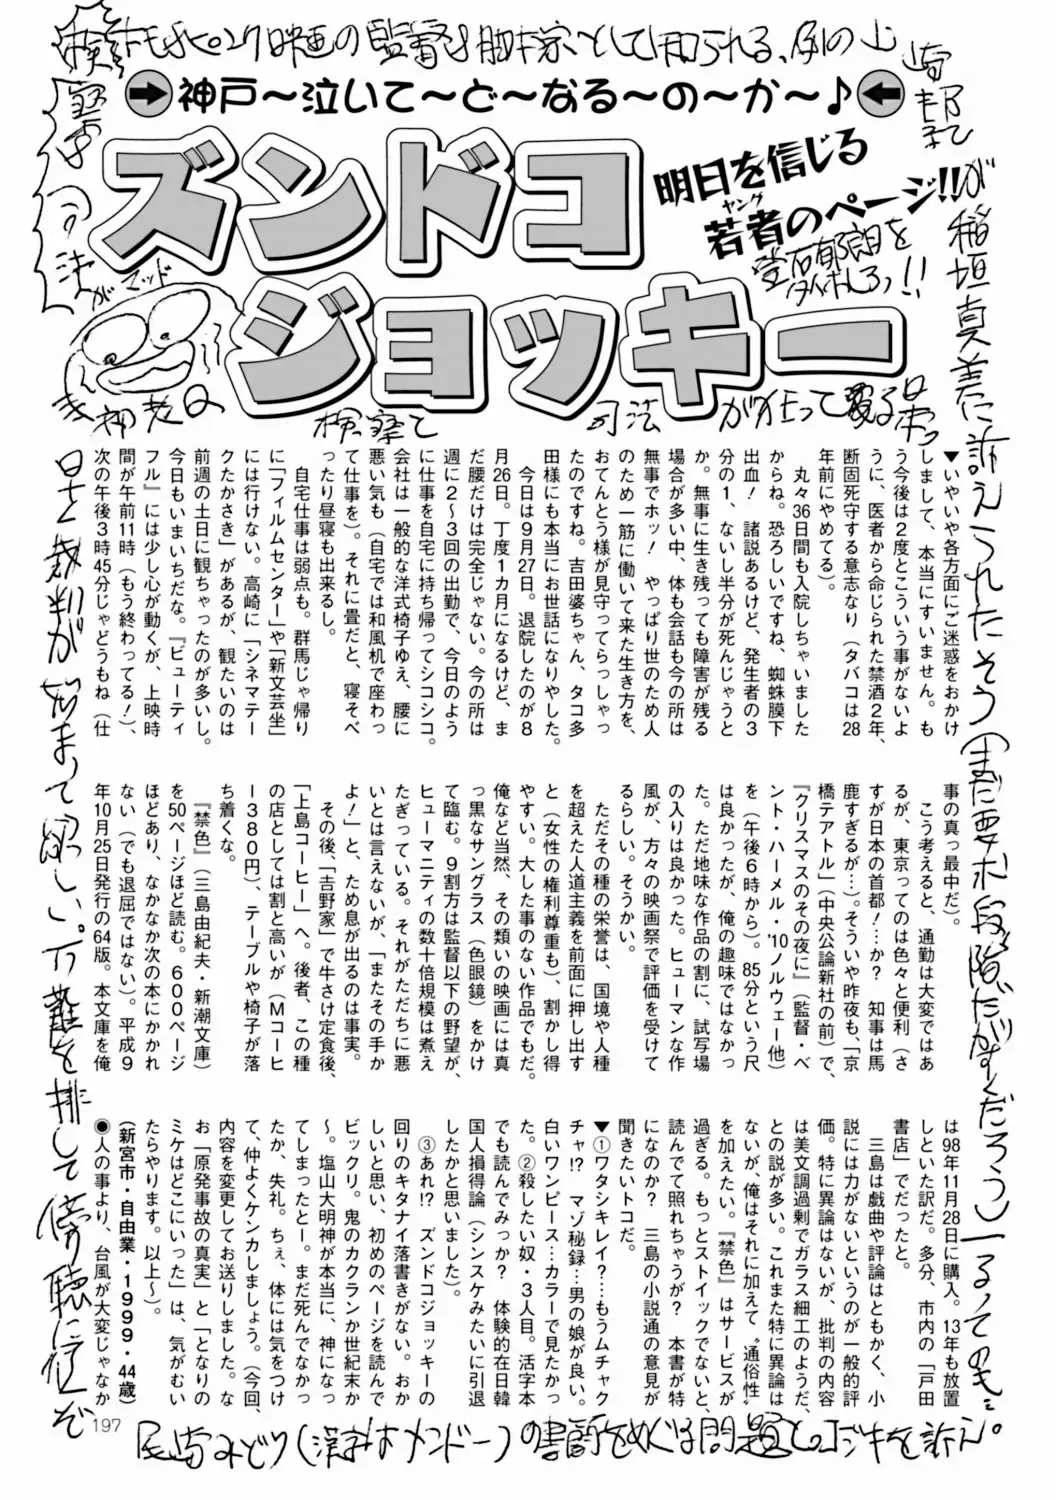 神戸〜泣いて〜ど〜なる〜の〜か〜♪
ズンドコ
ジョッキー
明日を信じる
若者のページ!!
ヤング
▼いやいや各方面にご迷惑をおかけ
しまして、本当にすいません。も
う今後は2度とこういう事がないよ
うに、医者から命じられた禁酒2年、
断固死守する意志なり(タバコは28
年前にやめてる)。
丸々36日間も入院しちゃいました
からね。恐ろしいですね、蜘蛛膜下
出血! 諸説あるけど、発生者の3
分の1、ないし半分が死んじゃうと
か。無事に生き残っても障害が残る
場合が多い中、体も会話も今の所は
無事でホッ! やっぱり世のため人
のため一筋に働いて来た生き方を、
おてんとう様が見守ってらっしゃっ
たのですね。吉田婆ちゃん、タコ多
田様にも本当にお世話になりやした。
今日は9月27日。退院したのが8
月26日。丁度1カ月になるけど、ま
だ腰だけは完全じゃない。今の所は
週に2〜3回の出勤で、今日のよう
に仕事を自宅に持ち帰ってシコシコ。
会社は一般的な洋式椅子ゆえ、腰に
悪い気も(自宅では和風机で座わっ
て仕事を)。それに畳だと、寝そべ
ったり昼寝も出来るし。
自宅仕事は弱点も。群馬じゃ帰り
に「フィルムセンター」や「新文芸坐」
には行けない。高崎に「シネマテー
クたかさき」があるが、観たいのは
前週の土日に観ちゃったのが多いし。
今日もいまいちだな。『ビューティ
フル』には少し心が動くが、上映時
間が午前11時(もう終わってる!)、
次の午後3時45分じゃどうもね(仕
事の真っ最中だ)。
こう考えると、通勤は大変ではあ
るが、東京ってのは色々と便利(さ
すが日本の首都!…か? 知事は馬
鹿すぎるが…)。そういや昨夜も、「京
橋テアトル」(中央公論新社の前)で、
『クリスマスのその夜に』(監督・ベ
ント・ハーメル・'10ノルウェー他)
を(午後6時から)。85分という尺
は良かったが、俺の趣味ではなかっ
た。ただ地味な作品の割に、試写場
の入りは良かった。ヒューマンな作
風が、方々の映画祭で評価を受けて
るらしい。そうかい。
ただその種の栄誉は、国境や人種
を超えた人道主義を前面に押し出す
と(女性の権利尊重も)、割かし得
やすい。大した事のない作品でもだ。
俺など当然、その類いの映画には真
っ黒なサングラス(色眼鏡)をかけ
て臨む。9割方は監督以下の野望が、
ヒューマニティの数十倍規模は煮え
たぎっている。それがただちに悪
いとは言えないが、「またその手か
よ!」と、ため息が出るのは事実。
その後、「吉野家」で牛さけ定食後、
「上島コーヒー」へ。後者、この種
の店としては割と高いが(Mコーヒ
ー380円)、テーブルや椅子が落
ち着くな。
『禁色』(三島由紀夫・新潮文庫)
を50ページほど読む。600ページ
ほどあり、なかなか次の本にかかれ
ない(でも退屈ではない)。平成9
年10月25日発行の64版。本文庫を俺
は98年11月28日に購入。13年も放置
しといた訳だ。多分、市内の「戸田
書店」でだったと。
三島は戯曲や評論はともかく、小
説には力がないというのが一般的評
価。特に異論はないが、批判の内容
は美文調過剰でガラス細工のようだ、
との説が多い。これまた特に異論は
ないが、俺はそれに加えて〝通俗性〟
を加えたい。『禁色』はサービスが
過ぎる。もっとストイックでないと、
読んでて照れちゃうが? 本書が特
になのか? 三島の小説通の意見が
聞きたいトコだ。
▼①ワタシキレイ?…もうムチャク
チャ!? マゾ秘録…男の娘が良い。
白いワンピース…カラーで見たかっ
た。②殺したい奴・3人目。活字本
でも読んでみっか? 体験的在日韓
国人損得論(シンスケみたいに引退
したかと思いました)。
③あれ!? ズンドコジョッキーの
回りのキタナイ落書きがない。おか
しいと思い、初めのページを読んで
ビックリ。鬼のカクランか世紀末か
〜。塩山大明神が本当に、神になっ
てしまったとー。まだ死んでなかっ
たか、失礼。ちぇ、体には気をつけ
て、仲よくケンカしましょう。(今回、
内容を変更してお送りしました。な
お「原発事故の真実」と「となりの
ミケはどこにいった」は、気がむい
たらやります。以上〜)。
(新宮市・自由業・1999・44歳)
●人の事より、台風が大変じゃなか
197